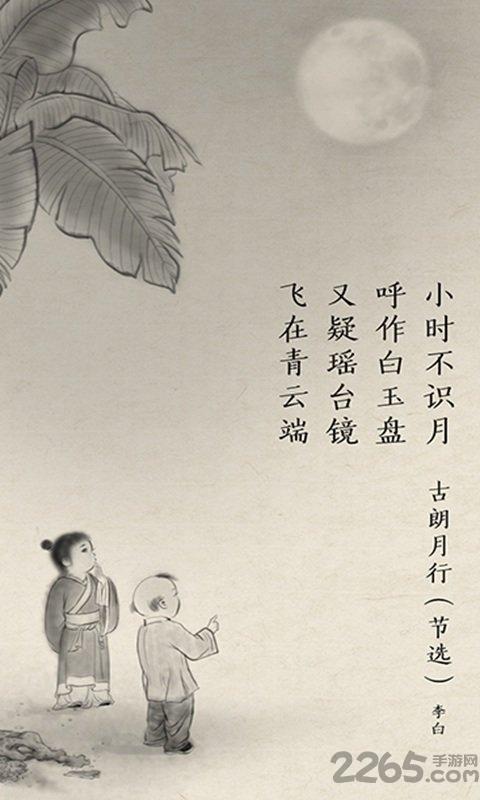 小时不识月
呼作白玉盘
又疑瑶台镜
飞在青云端
古朗月行(节选)
李白
2265.com
手游网